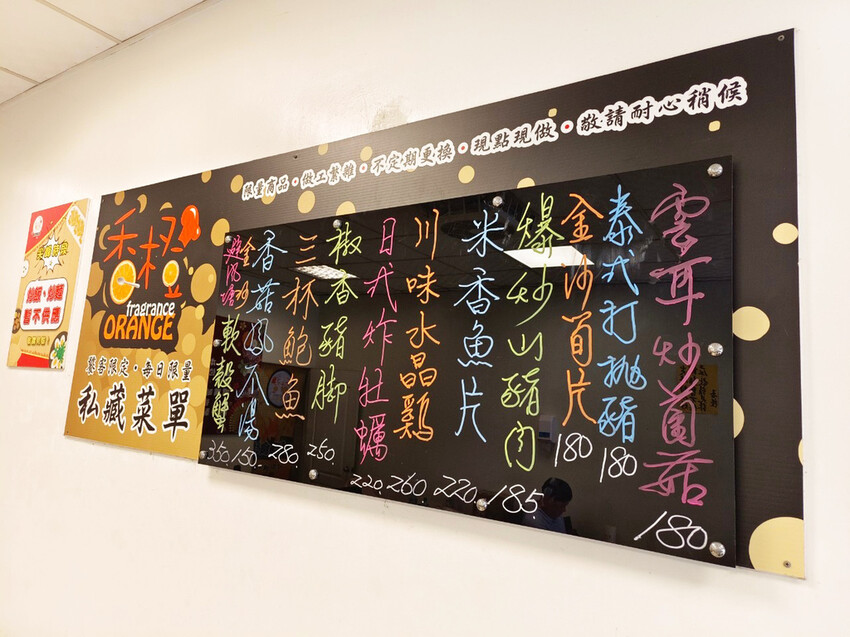 限量商品・做工繁雜・不定期更換・現點現做・敬請耐心稍候
香橙
fragrance
ORANGE
饕客限定・每日限量
私藏菜單
雲耳炒菌菇 180
泰式打拋豬 180
金沙筍片 180
爆炒山豬肉 185.
米香魚片 220.
川味水晶鷄 260.
日式炸牡蠣 220.
椒香豬脚 250.
三杯鮑魚 280.
香菇鳳爪湯 150.
金沙 避風塘 軟殼蟹 350.
炒飯、炒麵
暫不供應